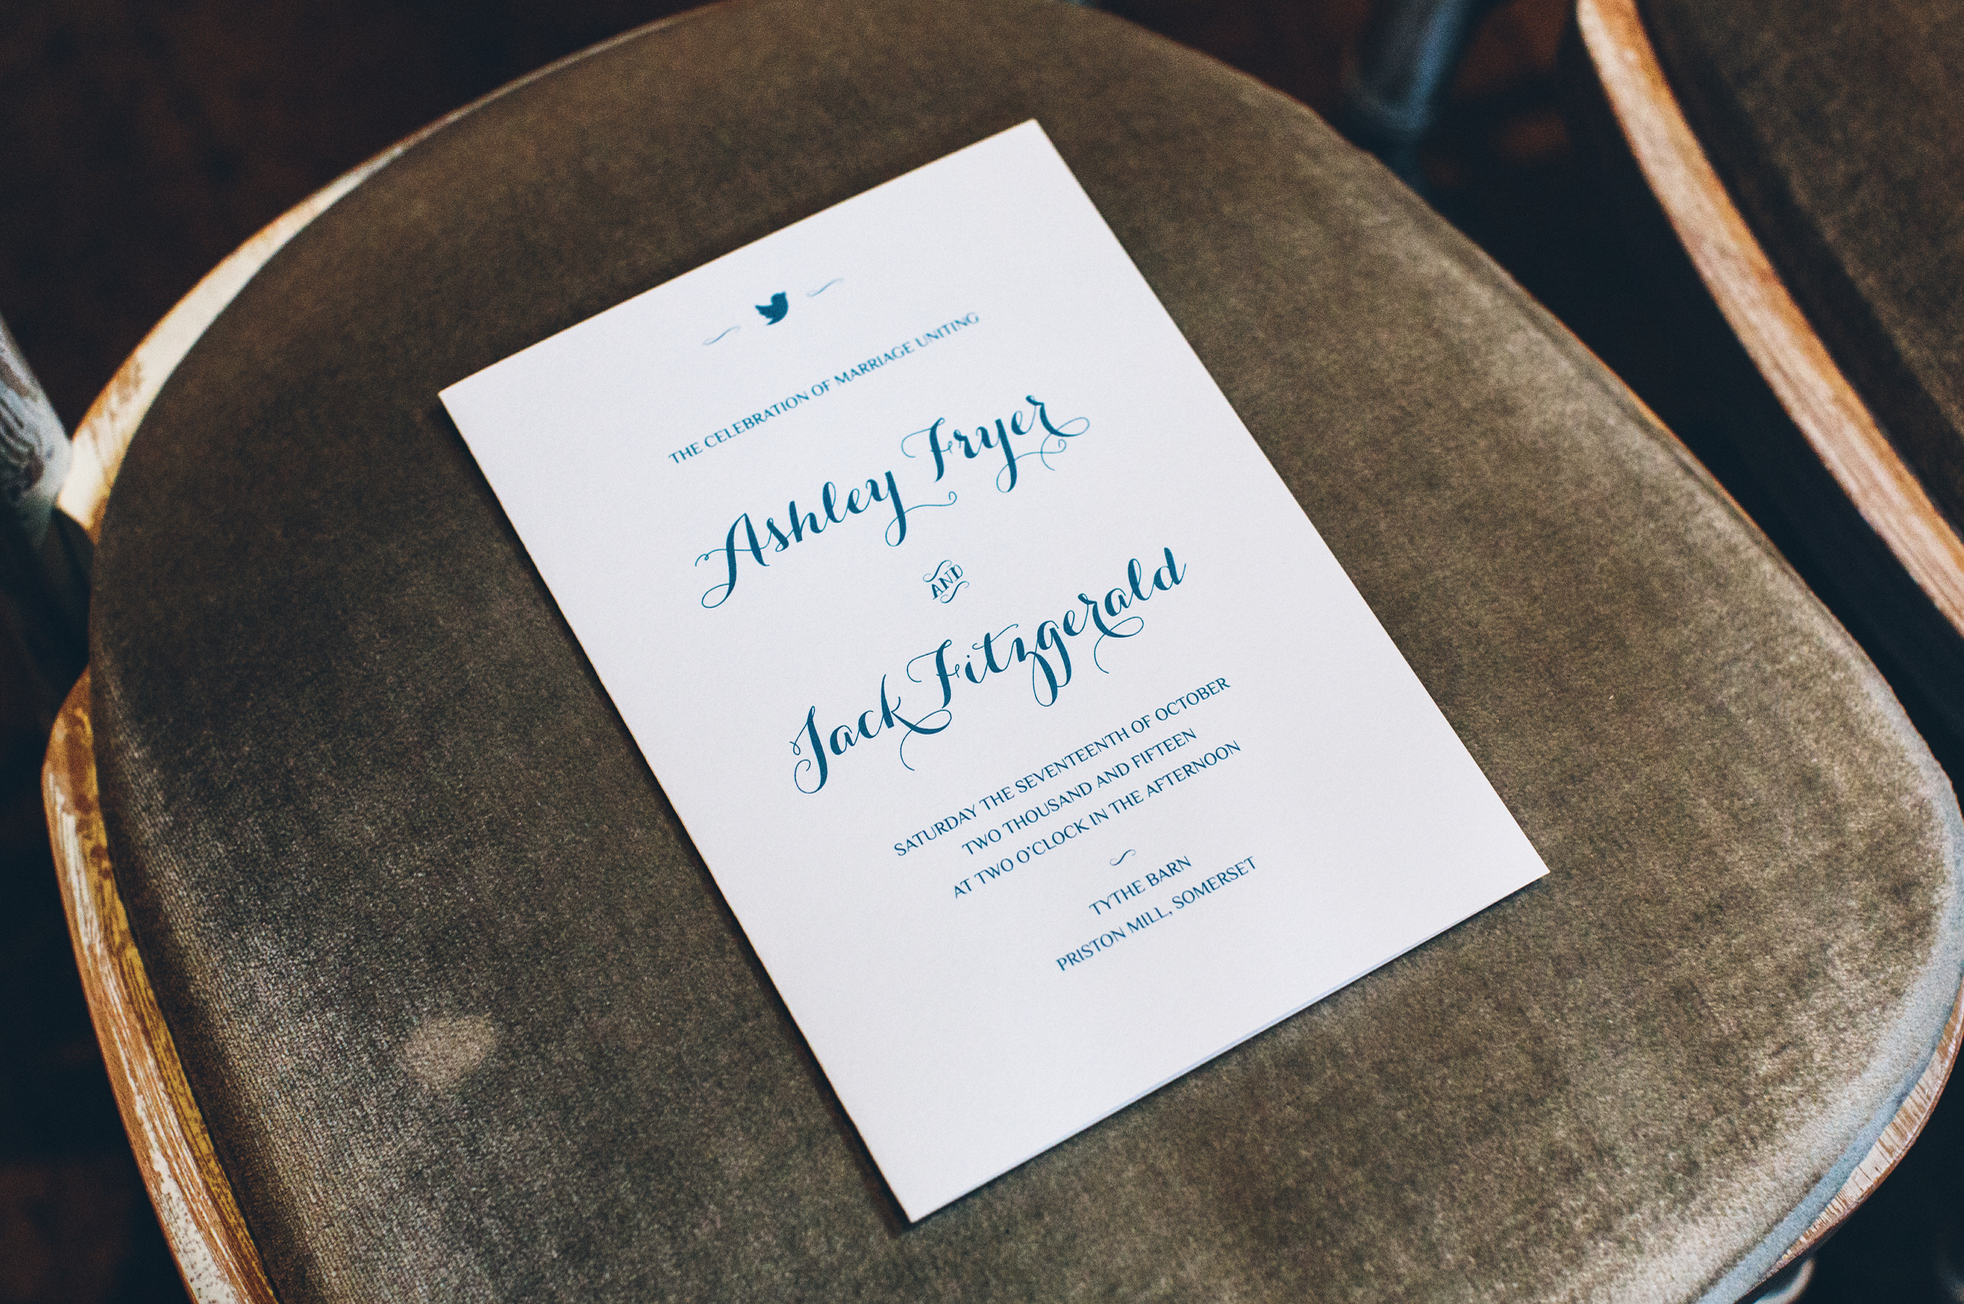 THE CELEBRATION OF MARRIAGE UNITING
Ashley Fryer
AND
Jack Fitzgerald
SATURDAY THE SEVENTEENTH OF OCTOBER
TWO THOUSAND AND FIFTEEN
AT TWO O'CLOCK IN THE AFTERNOON
TYTHE BARN
PRISTON MILL, SOMERSET